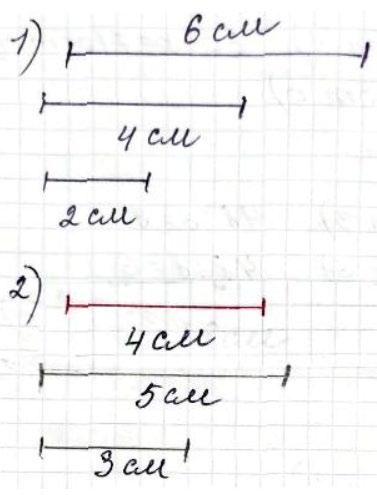 1) 6 см
4 см
2 см
2)
4 см
5 см
3 см